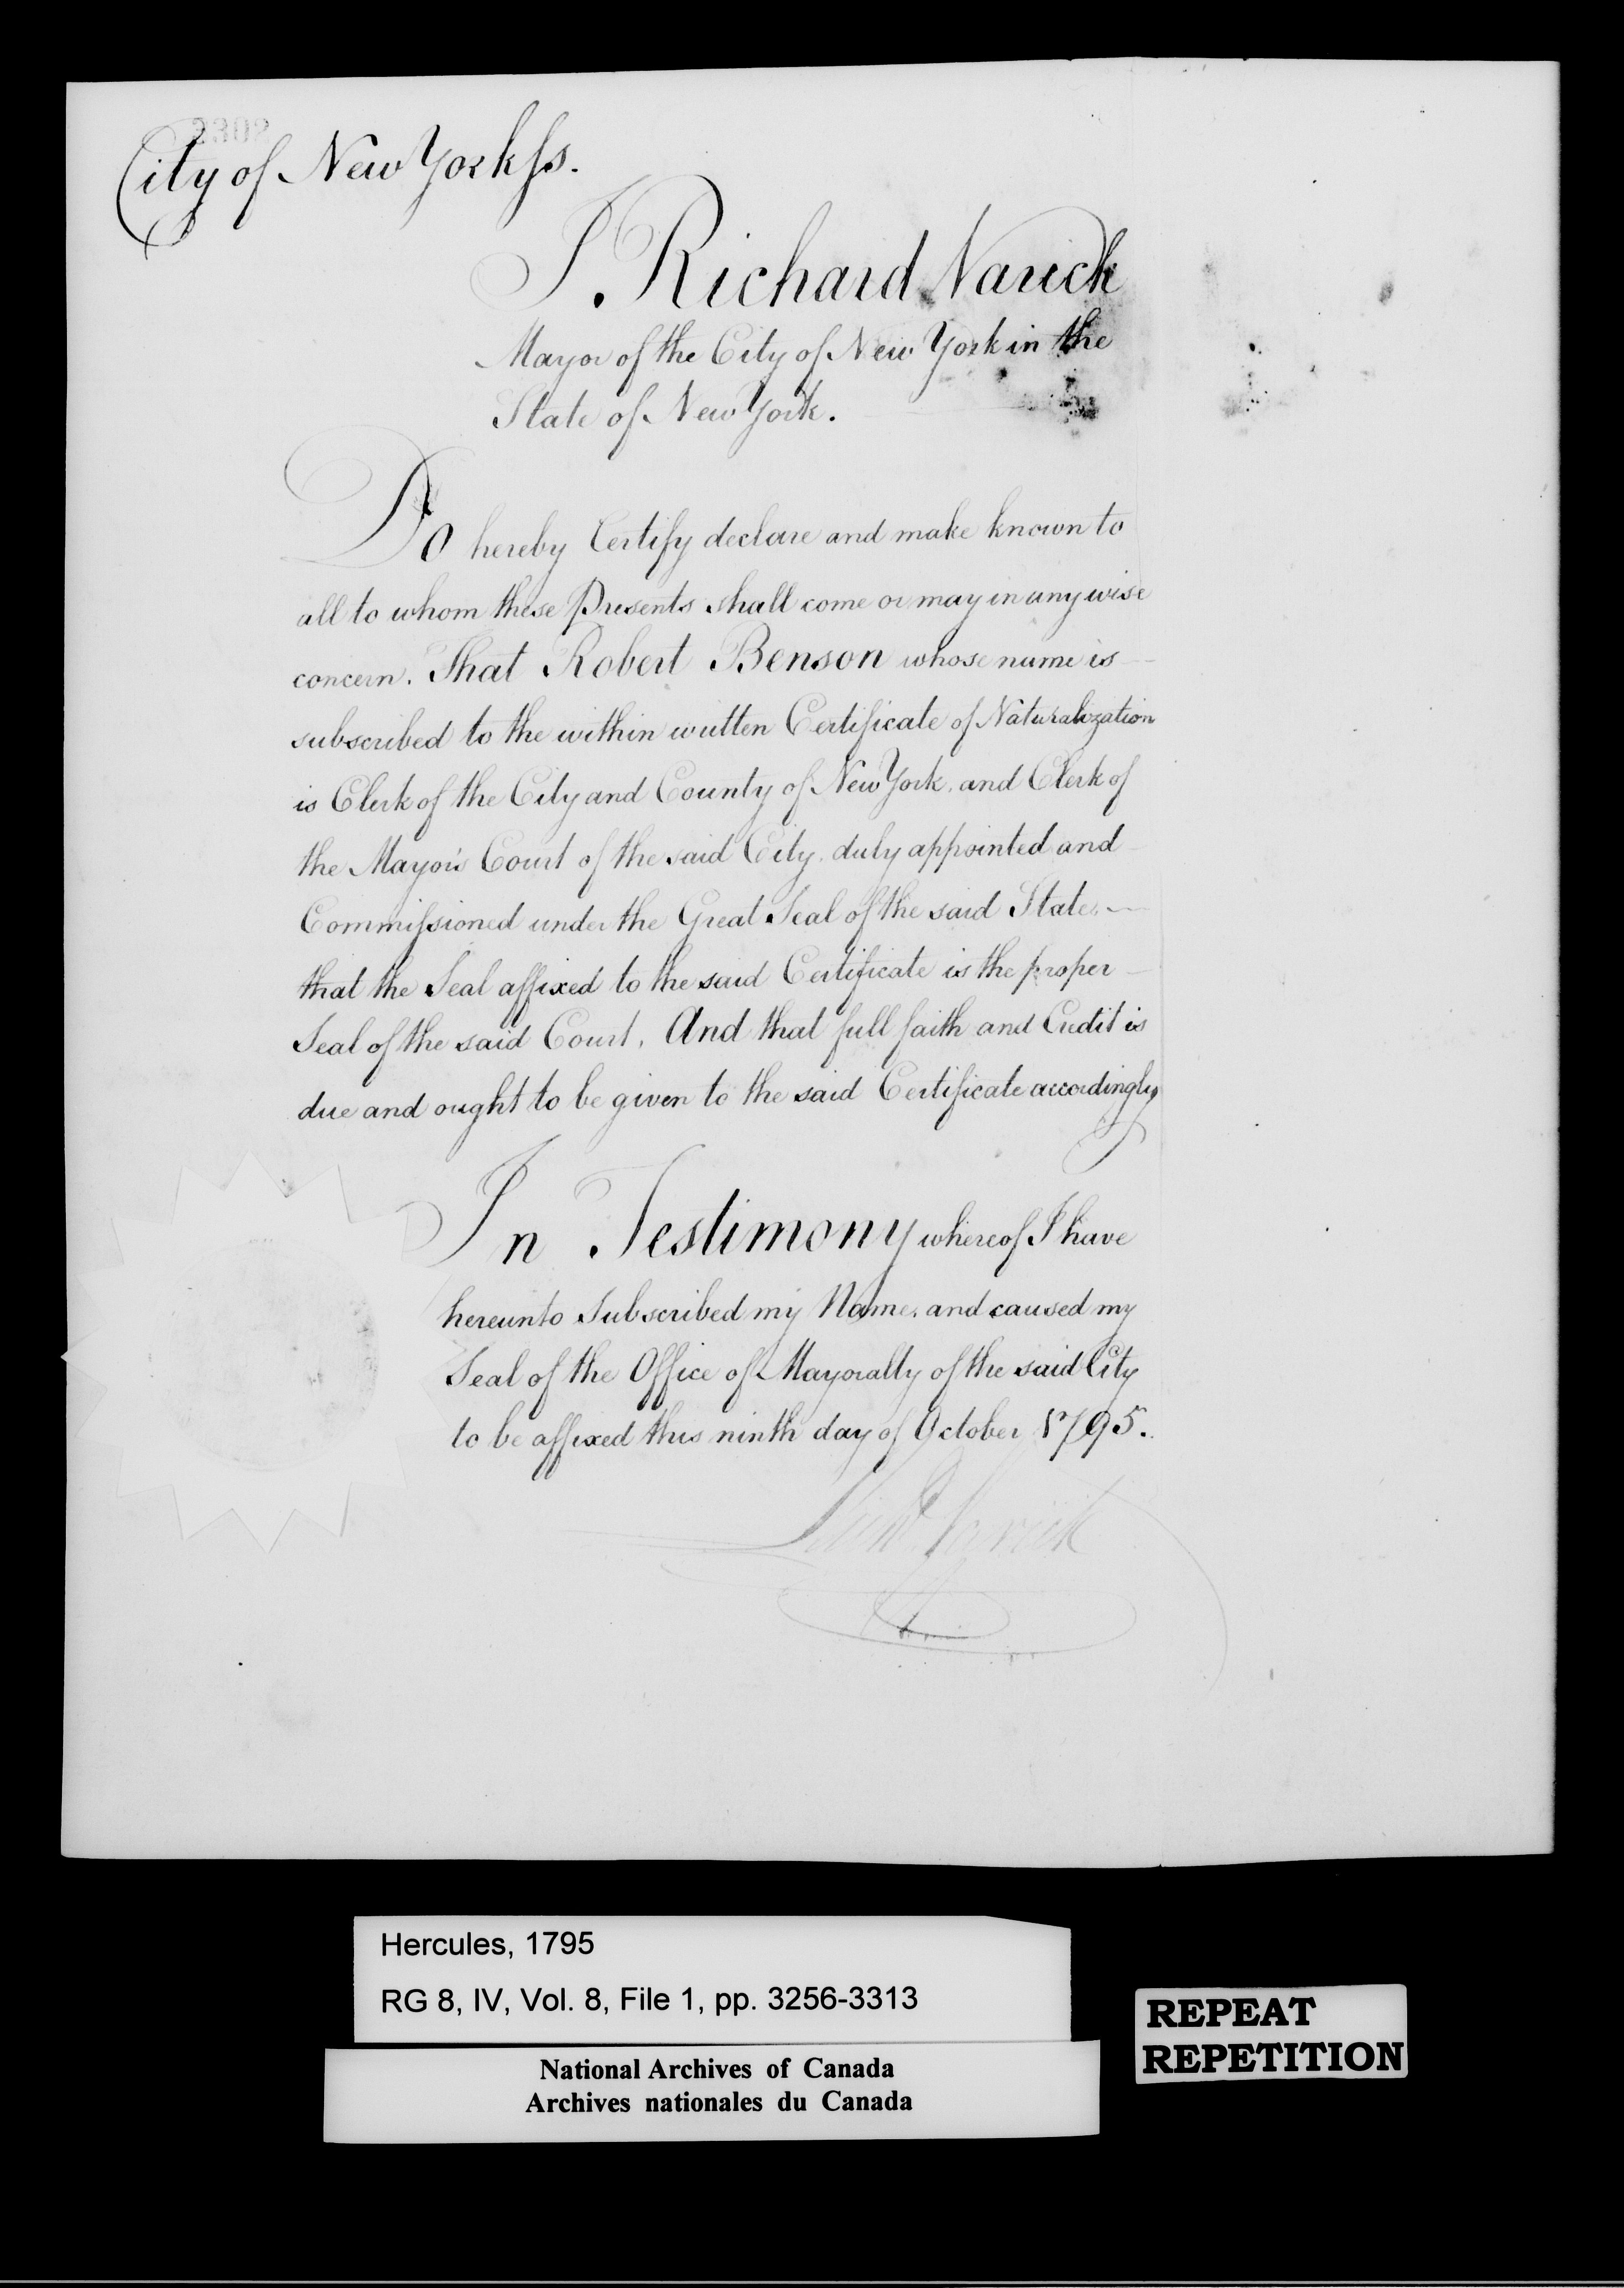 City of New York ſs.
I. Richard Varick
Mayor of the City of New York in the
State of New York.
Do hereby Certify declare and make known to
all to whom these Presents shall come or may in any wise
concern. That Robert Benson whose name is
subscribed to the within written Certificate of Naturalization
is Clerk of the City and County of New York, and Clerk of
the Mayor's Court of the said City, duly appointed and
Commiſsioned under the Great Seal of the said State,
that the Seal affixed to the said Certificate is the proper
Seal of the said Court, And that full faith and Credit is
due and ought to be given to the said Certificate accordingly
In Testimony whereof I have
hereunto Subscribed my Name, and caused my
Seal of the Office of Mayoralty of the said City
to be affixed this ninth day of October 1795.
Richd Varick
Hercules, 1795
RG 8, IV, Vol. 8, File 1, pp. 3256-3313
National Archives of Canada
Archives nationales du Canada
REPEAT
REPETITION